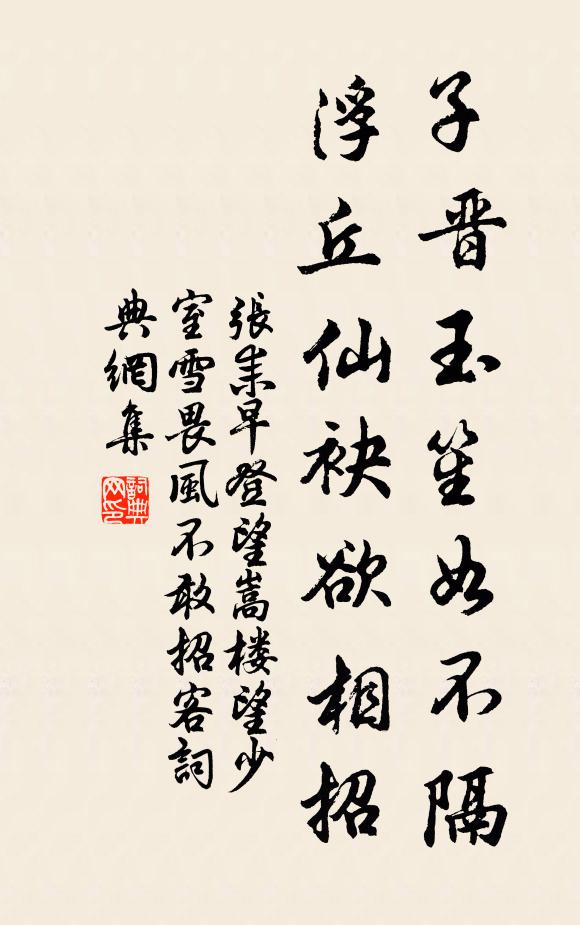 子晋玉笙如不隔
浮丘仙袂欲相招
張耒早登望嵩楼望少
室雪畏風不敢招客詞
典網集
詞典
网印